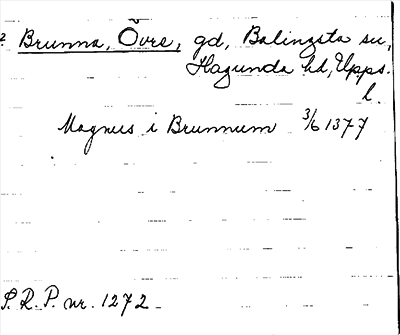 Brunna, Övre, gd, Balingsta sn,
Hagunda hd, Upps.
l.
Magnus i Brunnum 3/6 1377
S.R.P. nr. 1272